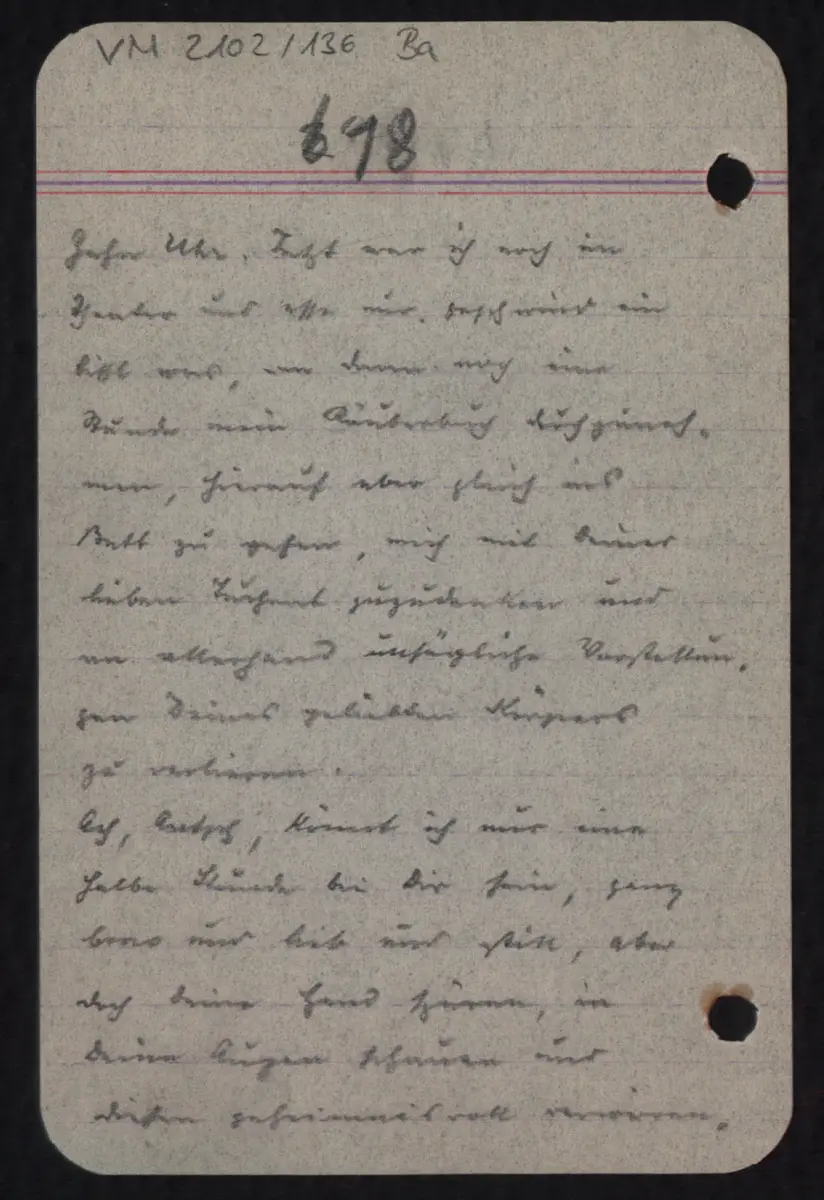 VM 2102/136 Ba
698
Zehn Uhr. Jetzt war ich noch im
Theater und esse nur geschwind ein
bißl was, um dann noch eine
Stunde mein Räuberbuch durchzuneh-
men, hierauf aber gleich ins
Bett zu gehen, mich mit Deiner
lieben Tuchent zuzudecken und
an allerhand unsägliche Vorstellun-
gen Deines geliebten Körpers
zu verlieren.
Ach, könnt ich nur eine
halbe Stunde bei Dir sein, ganz
brav und lieb und still, aber
doch Deine Hand spüren, in
Deine Augen schauen und
diesen geheimnisvoll verworren-